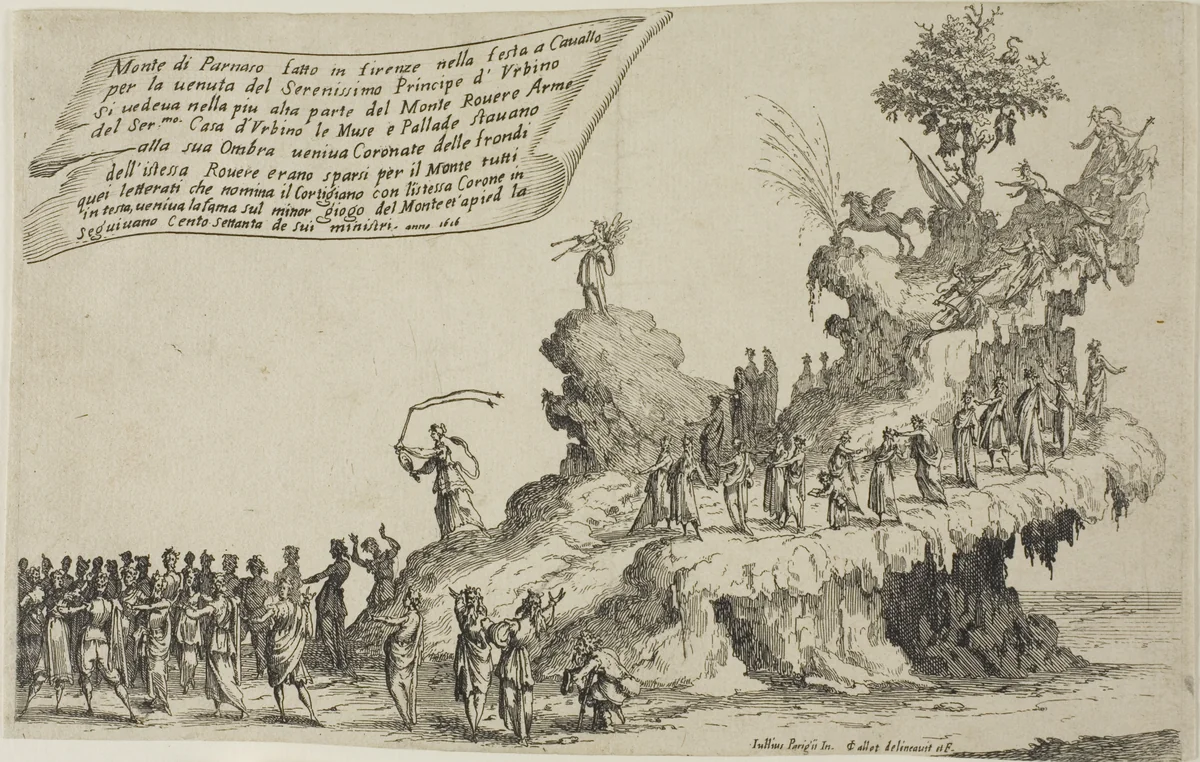 Monte di Parnaso fatto in firenze nella festa a Cauallo
per la uenuta del Serenissimo Principe d' Vrbino
Si uedeua nella piu alta parte del Monte Rouere Arme
del Ser.mo. Casa d'Vrbino le Muse e Pallade stauano
alla sua Ombra ueniua Coronate delle frondi
dell'istessa Rouere erano sparsi per il Monte tutti
quei letterati che nomina il Cortigiano con listessa Corone in
in testa, ueniua la fama sul minor giogo del Monte et' a pied la
seguiuano Cento settanta de sui ministri. anno 1616
Iullius Parigii In. Callot delineauit et F.